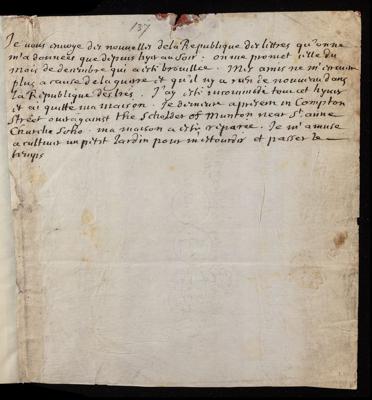 137
Je vous envoye des nouvelles de la Republique des lettres qu'on ne
m'a données que depuis hyer au soir. on me promet celle du
mois de decembre qui a esté brouillee. Mes amis ne m'
plus a cause de la guerre et qu'il n'y a rien de nouveau dans
la Republique des . J'ay esté incommodé tout cet hyver
et ai quitté ma maison. Je demeure a present in Compton
Street over against the of Munton near St. anne
Churche Soho. ma maison a esté reparee. Je m'amuse
a cultiver un petit Jardin pour m'etourdir et passer le
temps